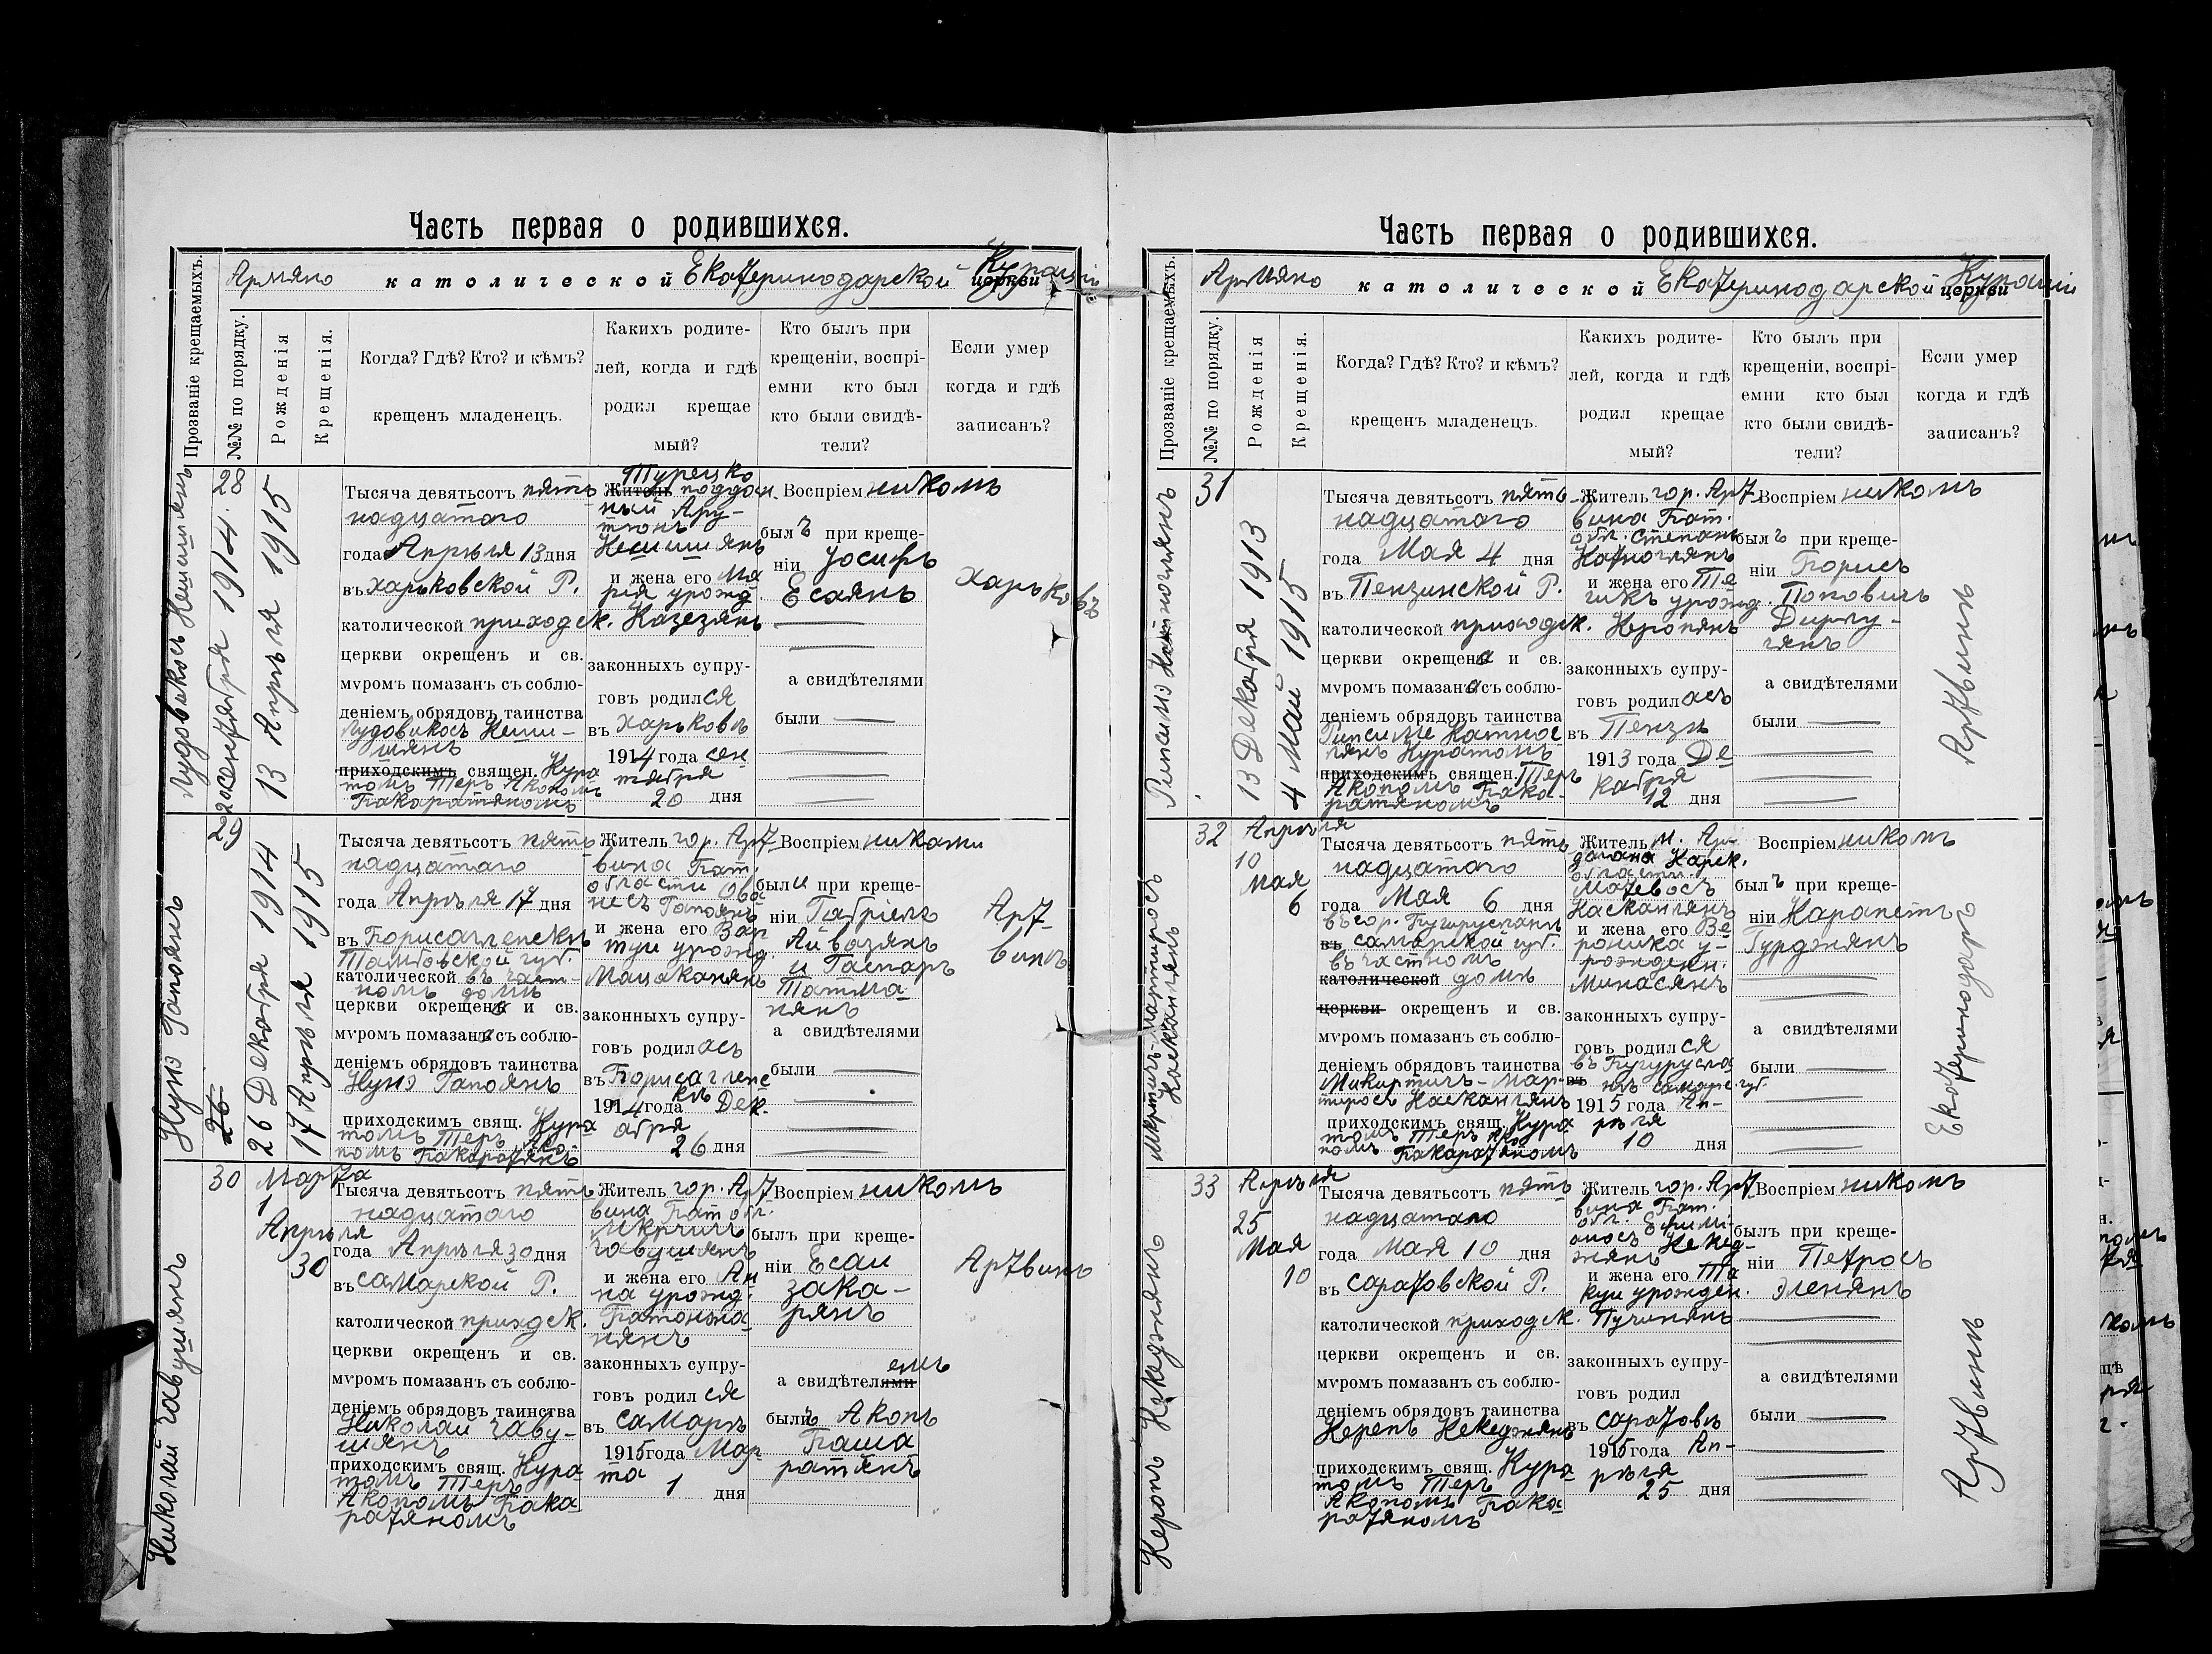 Часть первая о родившихся.
Армяно католической Екатеринодарской церкви
Прозваніе крещаемыхъ.
№№ по порядку.
Рожденія
Крещенія.
Когда? Гдѣ? Кто? и кѣмъ?
крещенъ младенецъ.
Какихъ родите-
лей, когда и гдѣ
родил крещае
мый?
Кто былъ при
крещеніи, воспрі-
емни кто был
кто были свидѣ-
тели?
Если умер
когда и гдѣ
записанъ?
Лудовикосъ Нешишянъ
28
20 Сентября 1914.
13 Апрѣля 1915
Тысяча девятьсот пять
надцатаго
года Апрѣля 13 дня
въ Харьковской Р.
католической приходск.
церкви окрещенъ и св.
мѵромъ помазанъ съ соблю-
деніемъ обрядовъ таинства
Лудовикосъ Неши-
шянъ
приходскимъ священ. Кура
томъ Теръ Акопомъ
Бакаратяномъ
Турецко
Житель поддан
ный Ару-
тюнъ
Нешишянъ
и жена его Ма
рія урожд.
Казезянъ
законныхъ супру-
говъ родился
въ Харьковѣ
1914 года сен
тября
20 дня
Воспріем никомъ
былъ при креще-
ніи Іосифъ
Есаянъ
а свидѣтелями
были
Харьковъ
Нунэ Гапоянъ
29
26
26 Декабря 1914
17 Апрѣля 1915
Тысяча девятьсот пять
надцатаго
года Апрѣля 17 дня
въ Борисоглѣбскѣ
Тамбовской губ.
католической въ част-
номъ домѣ
церкви окрещена и св.
мѵромъ помазана съ соблю-
деніемъ обрядовъ таинства
Нунэ Гапоянъ
приходскимъ свящ. Кура
томъ Теръ Ако-
помъ Бакаратянъ
Житель гор. Арт-
вина Бат.
области Ова
несъ Гапоянъ
и жена его Вар
туи урожд.
Мацаканянъ
законныхъ супру-
говъ родилась
1914 года Дек-
абря
26 дня
Воспріем никами
были при креще-
ніи Габріелъ
Айвазянъ
и Гаспаръ
Татма-
нянъ
а свидѣтелями
были
Арт-
винъ
Николай Чавушянъ
30
Марта
1
Апрѣля
30
Тысяча девятьсот пять
надцатаго
года Апрѣля 30 дня
въ Самарской Р.
католической приходск.
церкви окрещенъ и св.
мѵромъ помазанъ съ соблю-
деніемъ обрядовъ таинства
Николай Чаву-
шянъ
приходскимъ свящ. Кура
томъ Теръ
Акопомъ Бака
ратяномъ
Житель гор. Арт
вина Бат обл.
Мкртичъ
Чавушянъ
и жена его Ан
на урожд.
законныхъ супру-
говъ родился
въ Самарѣ
1915 года Мар-
та
1 дня
Воспріем никомъ
былъ при креще-
ніи Есаи
Зака-
рянъ
а свидѣтелями емъ
былъ Акопъ
Баша
ратянъ
Артвинъ
Часть первая о родившихся.
Армяно католической Екатеринодарской церкви
Прозваніе крещаемыхъ.
№№ по порядку.
Рожденія
Крещенія.
Когда? Гдѣ? Кто? и кѣмъ?
крещенъ младенецъ.
Какихъ родите-
лей, когда и гдѣ
родил крещае
мый?
Кто былъ при
крещеніи, воспрі-
емни кто был
кто были свидѣ-
тели?
Если умер
когда и гдѣ
записанъ?
31
13 Декабря 1913
4 Май 1915
Тысяча девятьсот пять-
надцатаго
года Мая 4 дня
въ Пензинской Р.
католической приходск.
церкви окрещена и св.
мѵромъ помазана съ соблю-
деніемъ обрядовъ таинства
приходскимъ священ. Теръ
Акопомъ Бака-
ратяномъ
Житель гор. Арт-
вина Бат.
обл. Степанъ
и жена его Те
урожд.
законныхъ супру-
говъ родилась
въ Пензѣ
1913 года Де
кабря
12 дня
Воспріем никомъ
былъ при креще-
ніи Борисъ
Поповичъ
а свидѣтелями
были
Артвинъ
Мкртичъ-Мартиросъ
Наскангянъ
32
Апрѣля
10
Мая
6
Тысяча девятьсот пять
надцатаго
года Мая 6 дня
въ самарской губ.
въ частномъ
католической домѣ
церкви окрещенъ и св.
мѵромъ помазанъ съ соблю-
деніемъ обрядовъ таинства
Микиртичъ-Мар-
тиросъ Наскангянъ
приходскимъ свящ. Кура
томъ Теръ Ако
помъ Бакаратяномъ
Житель м. Ар-
Карск.
области.
Матевосъ
Наскангянъ
и жена его Ве
роника у-
рожденн.
Минасянъ
законныхъ супру-
говъ родился
1915 года Ап-
рѣля
10 дня
Воспріем никомъ
былъ при креще-
ніи Карапетъ
Гурджянъ
а свидѣтелями
были
Екатеринодаръ
Керопъ Некеджянъ
33
Апрѣля
25
Мая
10
Тысяча девятьсот пять
надцатаго
года Мая 10 дня
въ Саратовской Р.
католической приходск.
церкви окрещенъ и св.
мѵромъ помазанъ съ соблю-
деніемъ обрядовъ таинства
Керепъ Некеджянъ
приходскимъ свящ. Кура
томъ Теръ
Акопомъ Бака
ратяномъ
Житель гор. Арт
вина Бат.
обл.
и жена его Та
куи урожден.
Пучинянъ
законныхъ супру-
говъ родил
въ Саратовѣ
1915 года Ап-
рѣля
25 дня
Воспріем никомъ
былъ при креще-
ніи Петросъ
Эленянъ
а свидѣтелями
были
Артвинъ